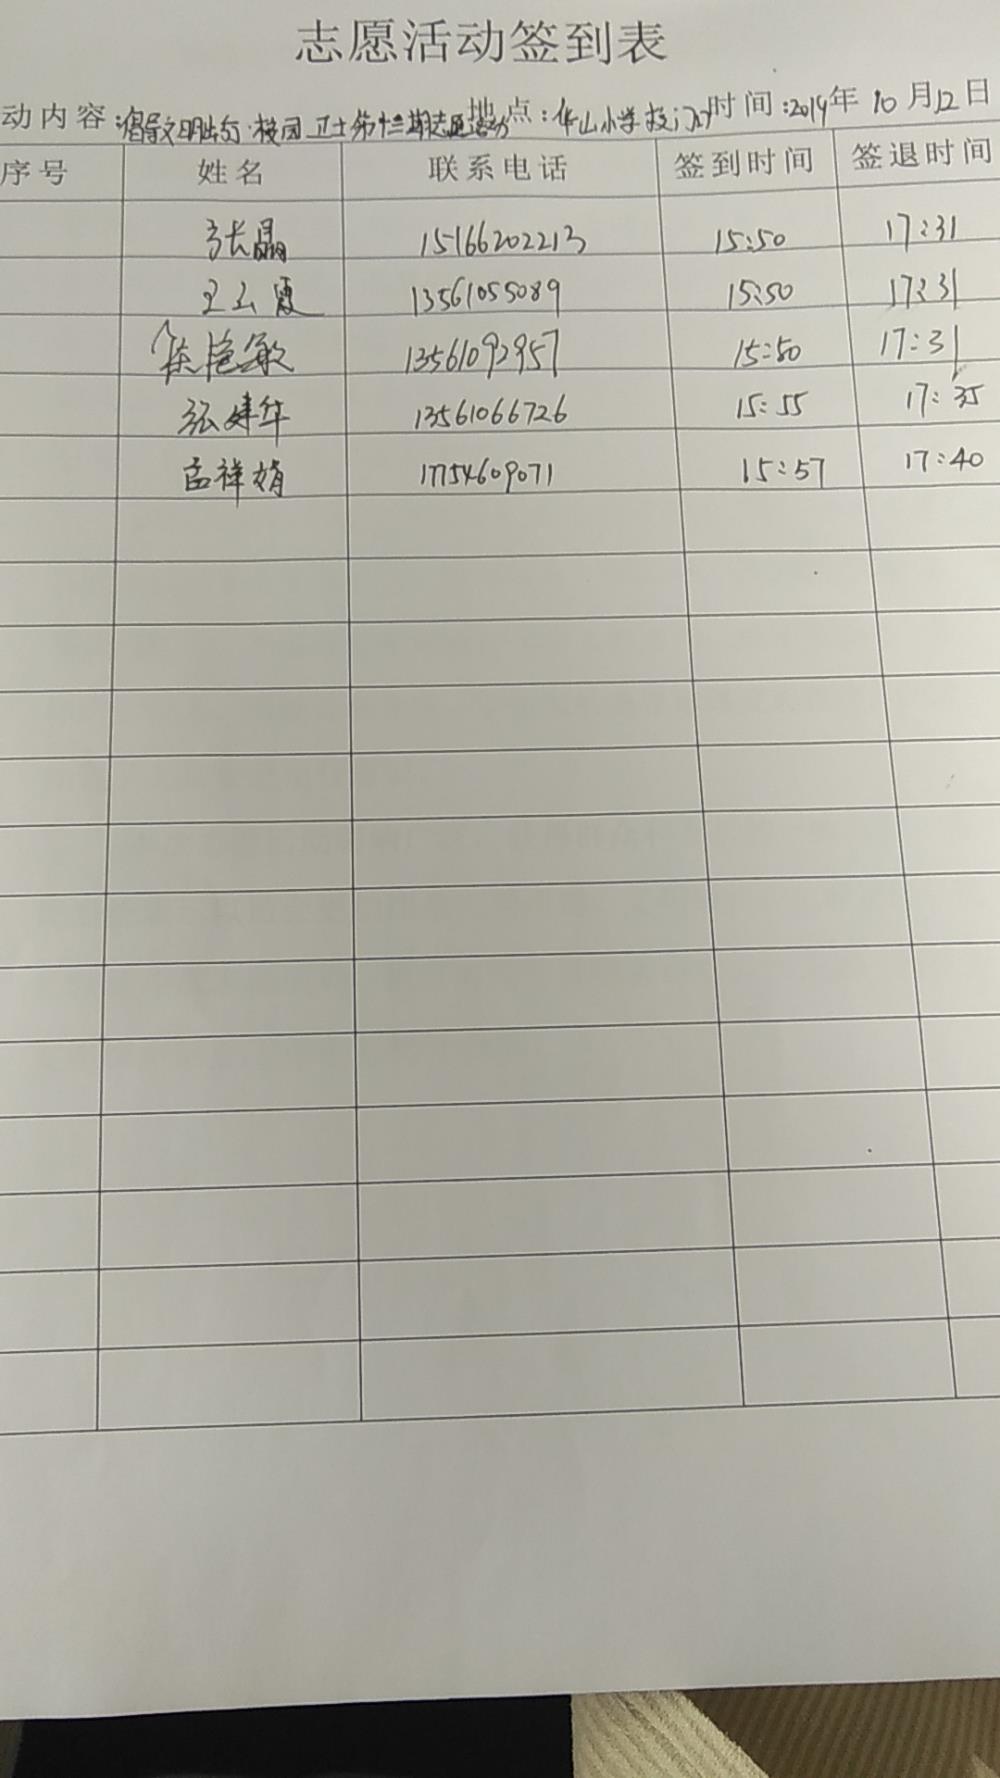 志愿活动签到表
动内容:倡导文明出行·校园卫士第十三期志愿活动 地点:华山小学校门口 时间:2019年10月12日
序号 姓名 联系电话 签到时间 签退时间
张晶 15166202213 15:50 17:31
王玉霞 13561055089 15:50 17:31
艳敏 13561092957 15:50 17:31
张建华 13561066726 15:55 17:35
孟祥娟 17754609071 15:57 17:40